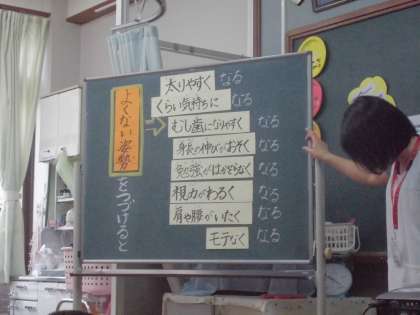 よくない姿勢
をつづけると
太りやすく なる
くらい気持ちに なる
むし歯になりやすく なる
身長の伸びがおそく なる
勉強がはかどらなく なる
視力がわるく なる
肩や腰がいたく なる
モテなく なる